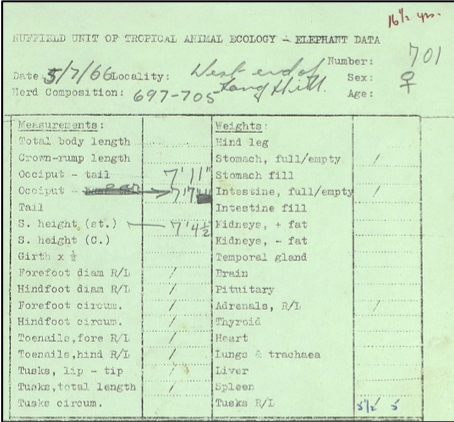 16½ yrs.
NUFFIELD UNIT OF TROPICAL ANIMAL ECOLOGY - ELEPHANT DATA
Number: 701
Date 5/7/66 Locality: West end of Sex: ♀
Herd Composition: 697-705 Hill. Age:
Measurements: Weights:
Total body length Hind leg
Crown-rump length Stomach, full/empty /
Occiput - tail 7'11" Stomach fill
Occiput - 7'7 Intestine, full/empty /
Tail Intestine fill
S. height (st.) 7'4½ Kidneys, + fat
S. height (C.) Kidneys, - fat
Girth x ½ Temporal gland
Forefoot diam R/L / Brain
Hindfoot diam R/L / Pituitary
Forefoot circum. / Adrenals, R/L /
Hindfoot circum. / Thyroid
Toenails, fore R/L / Heart
Toenails, hind R/L / Lungs & trachaea
Tusks, lip - tip / Liver
Tusks, total length / Spleen
Tusks circum. Tusks R/L 5½ 5